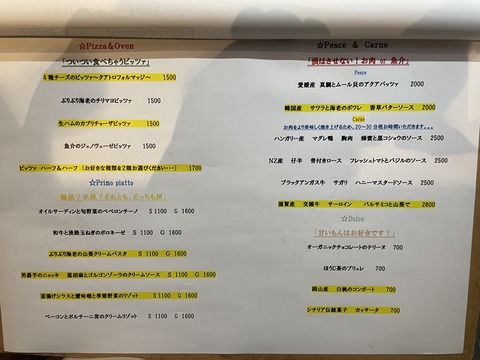 ☆Pizza&Oven
「ついつい食べちゃうピッツァ」
4種チーズのピッツァ～クアトロフォルマッジ～ 1500
ぷりぷり海老のチリマヨピッツァ 1500
生ハムのカプリチョーザピッツァ 1500
魚介のジェノヴェーゼピッツァ 1500
ピッツァ ハーフ&ハーフ (お好きな種類を2種お選びください・・・) 1700
☆Primo piatto
「麺派?米派?それとも、どっちも派」
オイルサーディンと旬野菜のペペロンチーノ S 1100 G 1600
和牛と淡路玉ねぎのボロネーゼ S 1100 G 1600
ぷりぷり海老の山葵クリームパスタ S 1100 G 1600
男爵芋のニョッキ 黒胡麻とゴルゴンゾーラのクリームソース S 1100 G 1600
釜揚げシラスと蟹味噌と季節野菜のリゾット S 1100 G 1600
ベーコンとポルチーニ茸のクリームリゾット S 1100 G 1600
☆Pesce & Carne
「損はさせない!お肉 or 魚介」
Pesce
愛媛産 真鯛とムール貝のアクアパッツァ 2000
韓国産 サワラと海老のポワレ 香草バターソース 2000
Carne
お肉をより美味しく焼き上げるため、20～30分程お時間いただきます。。。
ハンガリー産 マグレ鴨 胸肉 蜂蜜と黒コショウのソース 2500
NZ産 仔羊 骨付きロース フレッシュトマトとバジルのソース 2500
ブラックアンガス牛 サガリ ハニーマスタードソース 2500
滋賀産 交雑牛 サーロイン バルサミコと山葵で 2800
☆Dolce
「甘いもんはお好きです?」
オーガニックチョコレートのテリーヌ 700
ほうじ茶のブリュレ 700
岡山産 白桃のコンポート 700
シチリア伝統菓子 カッサータ 700